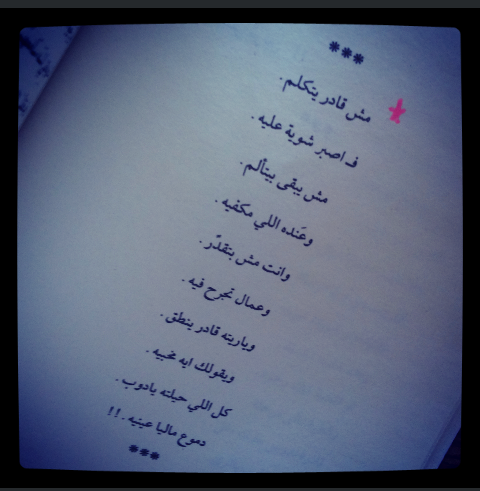 ***
مش قادر يتكلم.
فـ اصبر شوية عليه.
مش يبقى بيتألم.
وعَنده اللي مكفيه.
وانت مش بتقدّر.
وعمال تجرح فيه.
وياريته قادر ينطق.
ويقولك ايه مخبيه.
كل اللي حيلته يادوب.
دموع ماليا عينيه..!!
***